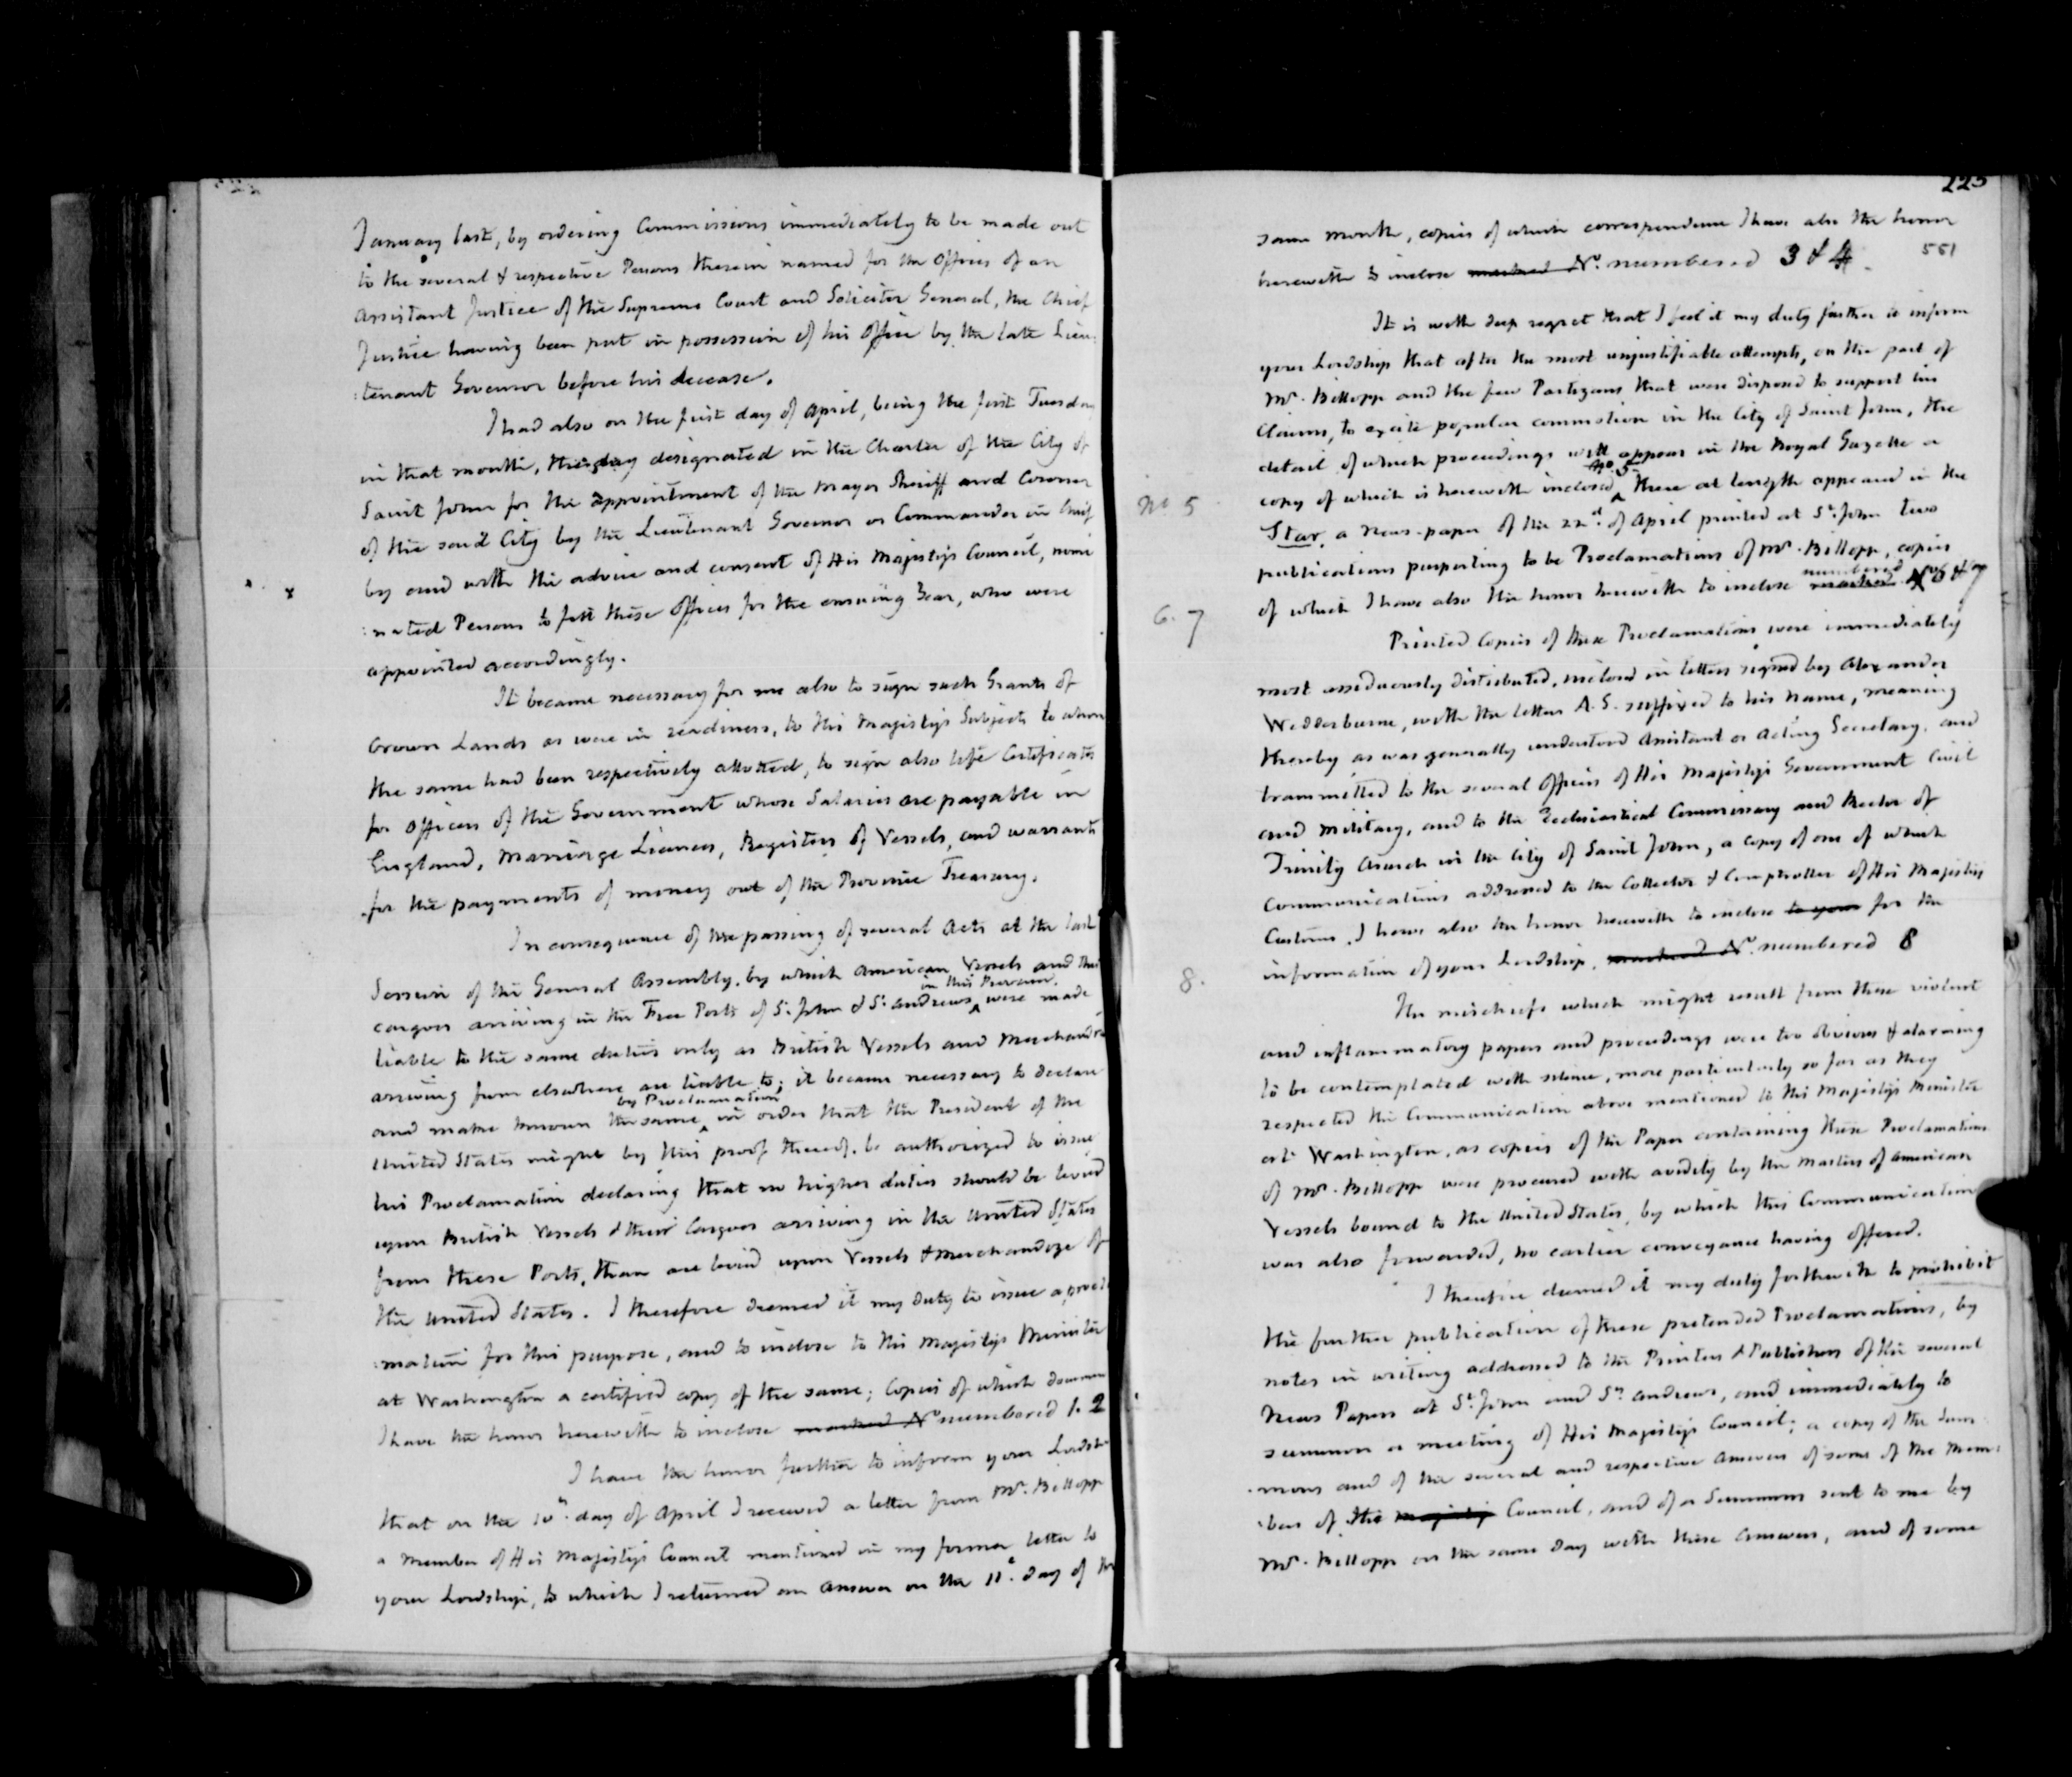 January last, by ordering Commissions immediately to be made out
to the several & respective Persons therein named for the Offices of an
Assistant Justice of the Supreme Court and Solicitor General, the Chief
Justice having been put in possession of his Office by the late Lieu:
:tenant Governor before his decease.
I had also on the first day of April, being the first Tuesday
in that month, the day designated in the Charter of the City of
Saint John for the appointment of the Mayor Sheriff and Coroner
of the said City by the Lieutenant Governor or Commander in Chief
by and with the advice and consent of His Majesty's Council, nomi
:nated Persons to fill these Offices for the ensuing Year, who were
appointed accordingly.
It became necessary for me also to sign such Grants of
Crown Lands as were in readiness, to His Majesty's Subjects to whom
the same had been respectively allotted, to sign also life Certificates
for Officers of the Government whose Salaries are payable in
England, Marriage Licences, Registers of Vessels, and warrants
for the payments of money out of the Province Treasury.
In consequence of the passing of several Acts at the last
Session of the General Assembly, by which American Vessels and their
in this Province
cargoes arriving in the Free Ports of St. John & St. Andrews ^ were made
liable to the same duties only as British Vessels and Merchandize
arriving from elsewhere are liable to; it became necessary to declare
by Proclamation
and make known the same ^ in order that the President of the
United States might by this proof thereof, be authorized to issue
his Proclamation declaring that no higher duties should be levied
upon British Vessels & their Cargoes arriving in the United States
from these Ports, than are levied upon Vessels & Merchandize of
the United States. I therefore deemed it my duty to issue a procla
:mation for this purpose, and to inclose to His Majesty's Minister
at Washington a certified copy of the same; Copies of which documents
I have the honor herewith to inclose marked No numbered 1. 2
I have the honor further to inform your Lordship
that on the 10th. day of April I received a letter from Mr. Billopp
a Member of His Majesty's Council mentioned in my former letter to
your Lordship, to which I returned an Answer on the 11th. day of the
223
same month, copies of which correspondence I have also the honor
551
herewith to inclose marked No. numbered 3 & 4.
It is with deep regret that I feel it my duty further to inform
your Lordship that after the most unjustifiable attempts, on the part of
Mr. Billopp and the few Partizans that were disposed to support his
Claims, to excite popular commotion in the City of Saint John, the
detail of which proceedings will appear in the Royal Gazette a
No. 5
copy of which is herewith inclosed ^ there at length appeared in the
No 5
Star, a News-paper of the 22d. of April printed at St. John two
publications purporting to be Proclamations of Mr. Billopp, copies
numbered
of which I have also the honor herewith to inclose marked No 6 & 7
6. 7
Printed Copies of these Proclamations were immediately
most assiduously distributed, inclosed in letters signed by Alexander
Wedderburne, with the letters A.S. suffixed to his name, meaning
thereby as was generally understood Assistant or Acting Secretary, and
transmitted to the several Officers of His Majesty's Government Civil
and Military, and to the Ecclesiastical Commissary and Rector of
Trinity Church in the City of Saint John, a copy of one of which
Communications addressed to the Collector & Comptroller of His Majestys
Customs, I have also the honor herewith to inclose to your for the
information of your Lordship, marked No. numbered 8
8.
The mischiefs which might result from these violent
and inflammatory papers and proceedings were too obvious & alarming
to be contemplated with silence, more particularly so far as they
respected the Communication above mentioned to His Majesty's Minister
at Washington, as copies of the Paper containing these Proclamations
of Mr. Billopp were procured with avidity by the Masters of American
Vessels bound to the United States, by which this Communication
was also forwarded, no earlier conveyance having offered.
I therefore deemed it my duty forthwith to prohibit
the further publication of these pretended Proclamations, by
notes in writing addressed to the Printers & Publishers of the several
News Papers at St. John and St. Andrews, and immediately to
summon a meeting of His Majesty's Council; a copy of the Sum
:mons and of the several and respective Answers of some of the Mem:
:bers of the Majesty Council, and of a Summons sent to me by
Mr. Billopp on the same day with these Answers, and of some